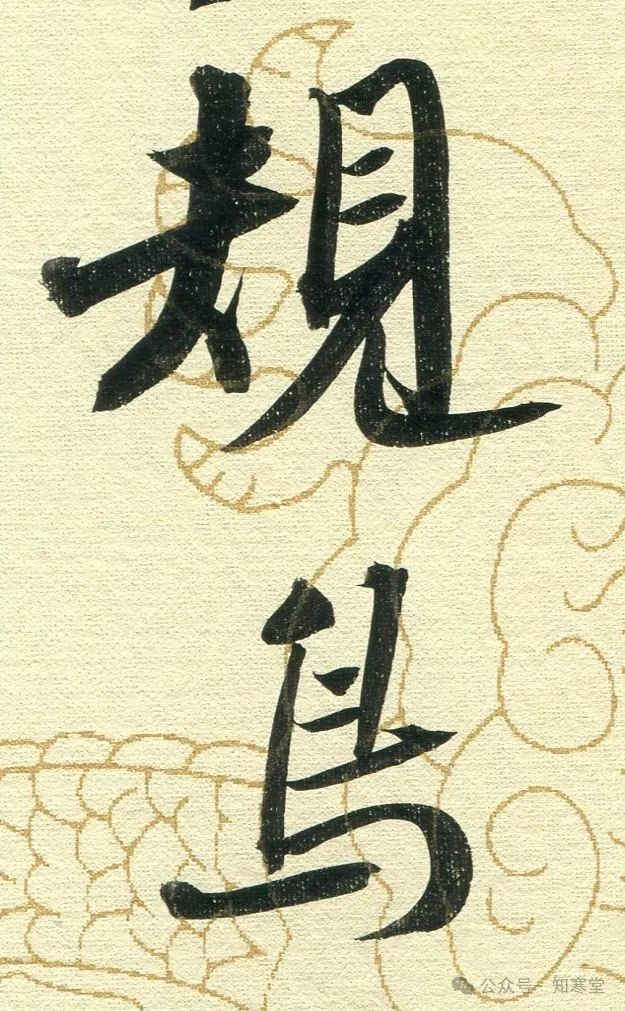 規
鳥
公众号 · 知寒堂